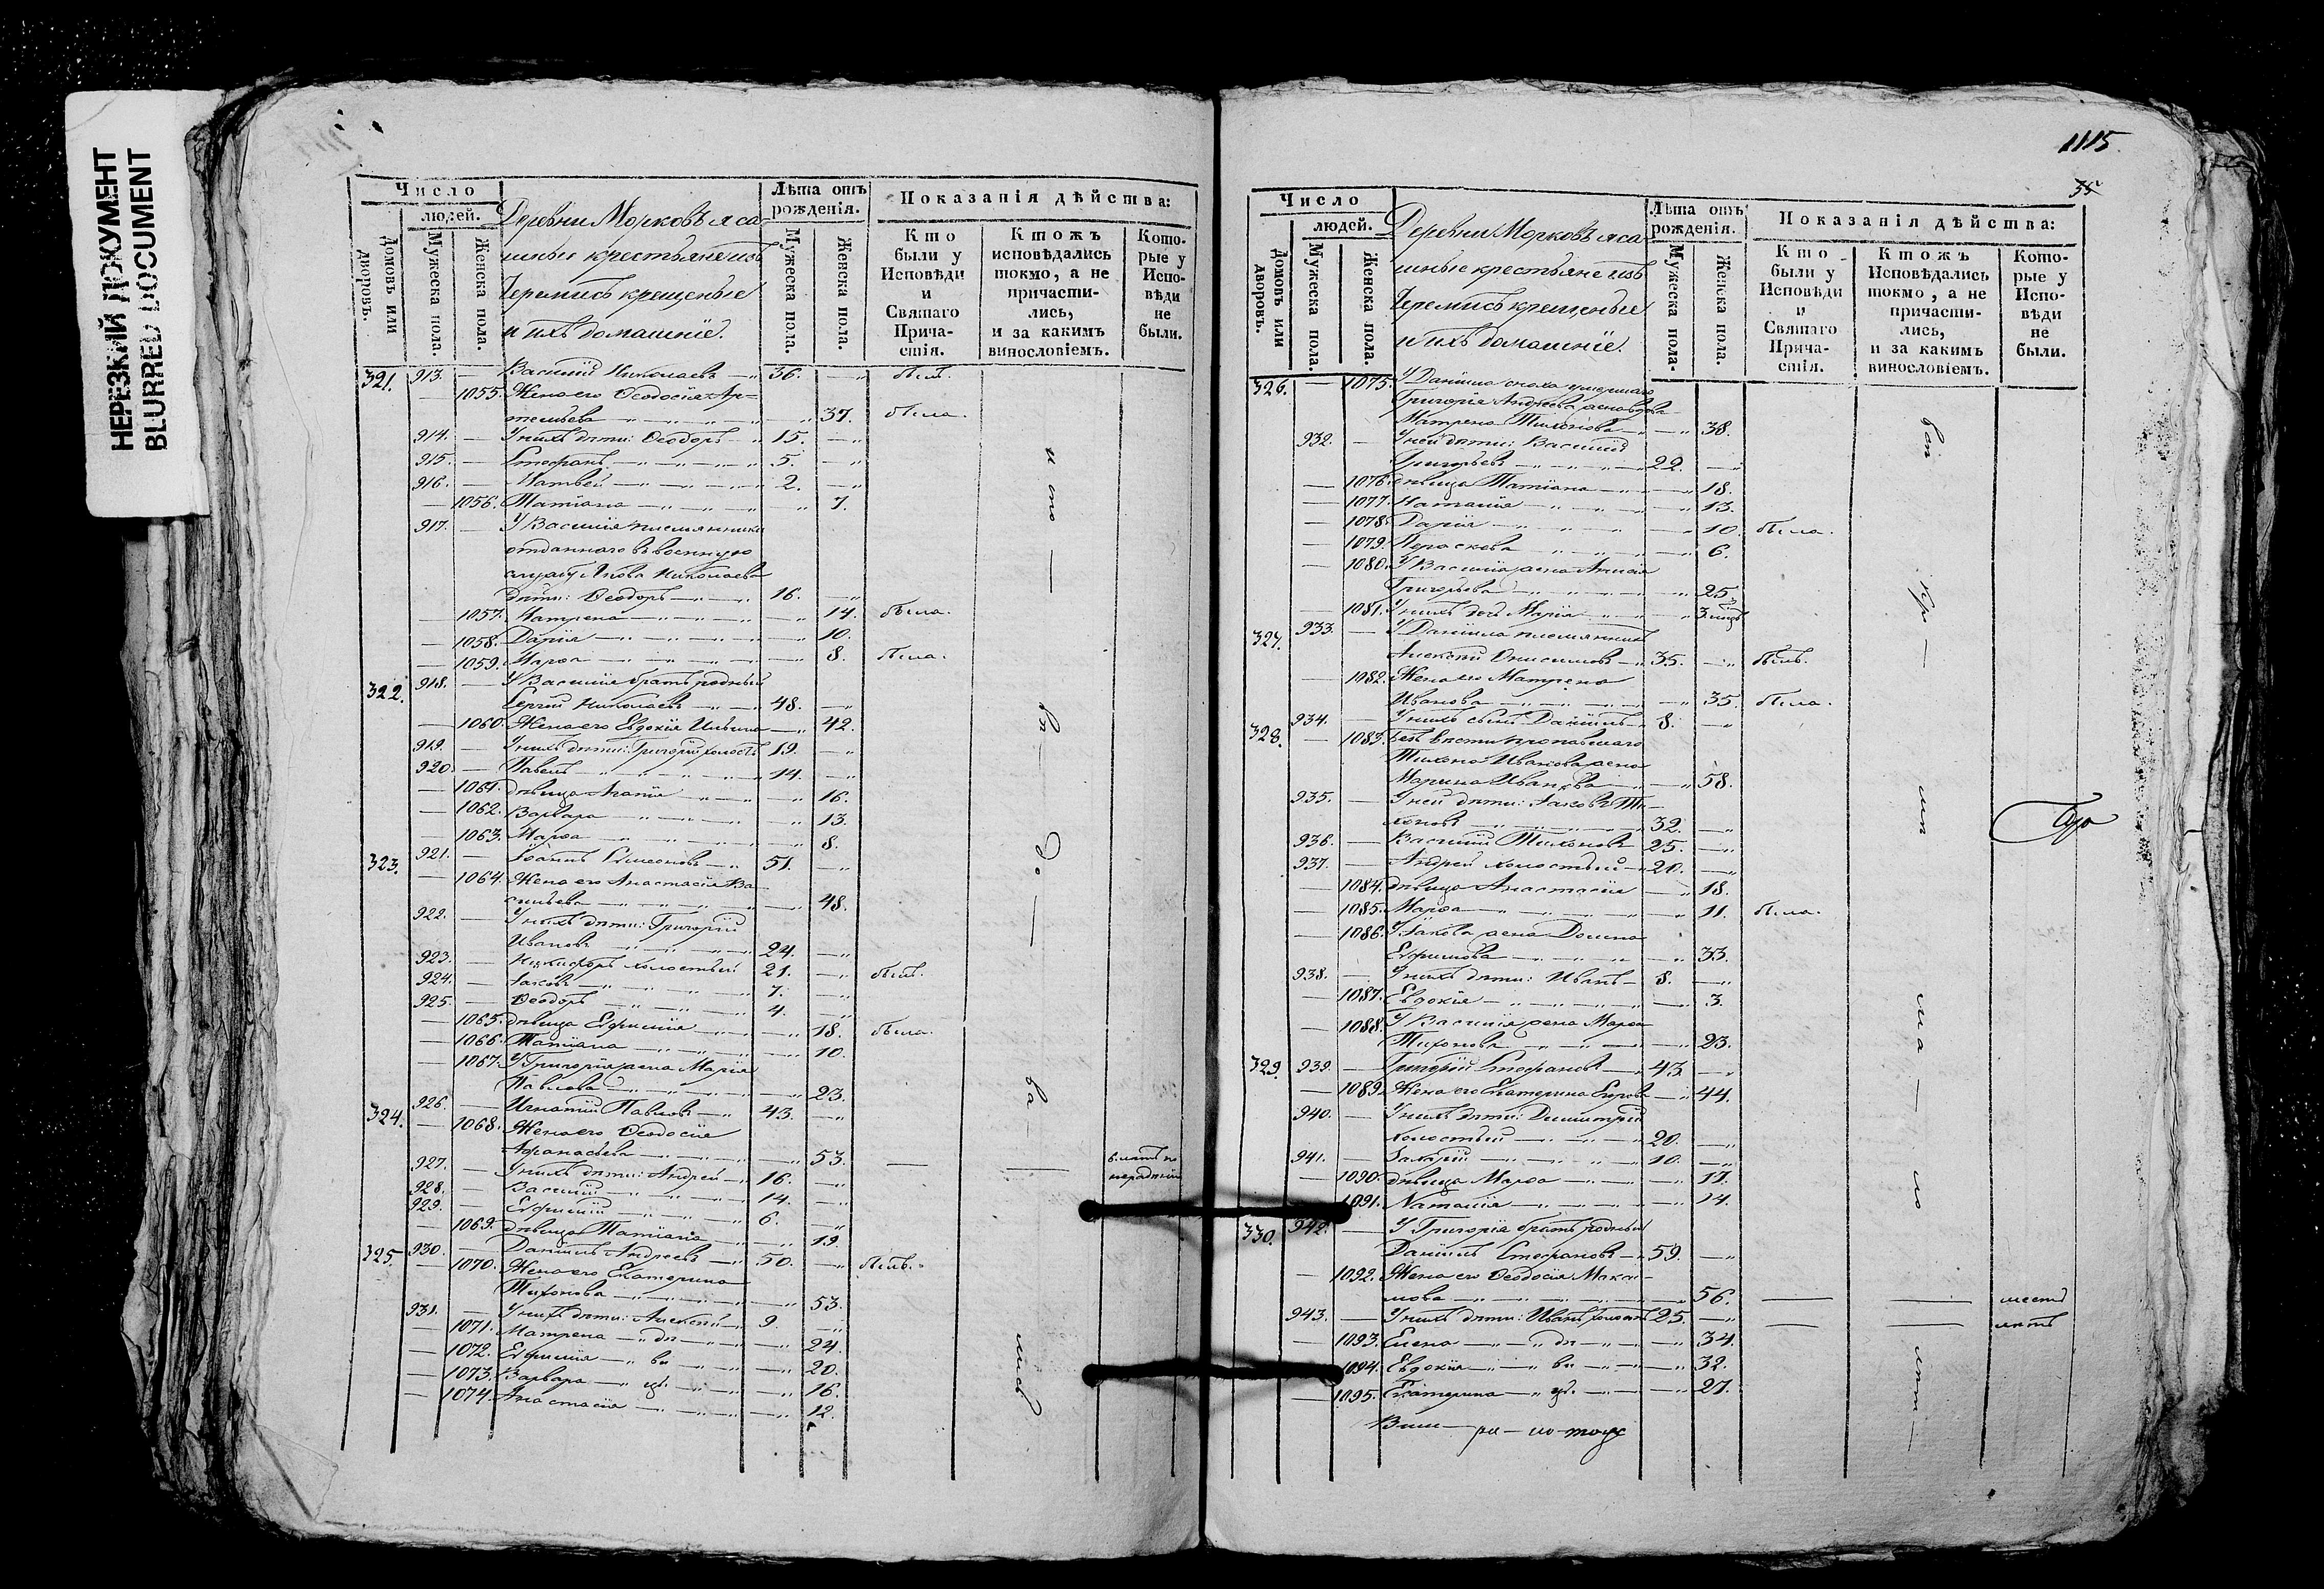 НЕРЕЗКИЙ ДОКУМЕНТ
BLURRED DOCUMENT
Число
людей.
Домовъ или дворовъ.
Мужеска пола.
Женска пола.
Деревни Морковъ яса-
шные крестьяне изъ
Черемисъ крещеные
и ихъ домашніе.
Лѣта отъ рожденія.
Мужеска пола.
Женска пола.
Показанія дѣйства:
Кто были у Исповѣди и Святаго Прича-стія.
Ктожъ исповѣдались токмо, а не причасти-лись, и за какимъ винословіемъ.
Кото-рые у Испо-вѣди не были.
321. 913. — Василій Николаевъ 36. — былъ.
— 1055. Жена его Ѳеодосія Ар-
темьева 37. была.
914. — У нихъ дѣти: Ѳеодоръ 15. —
915. — Стефанъ 5. —
916. — Матвей 2. —
— 1056. Татіана — 7.
917. — У Василія племянника
отданнаго въ военную
службу Якова Николаева
дѣти: Ѳеодоръ 16. —
— 1057. Матрена — 14. была.
— 1058. Дарія — 10.
— 1059. Марѳа — 8. была.
322. 918. — У Василія братъ родный
Сергій Николаевъ 48. —
— 1060. Жена его Евдокія Ильина — 42.
919. — У нихъ дѣти: Григорій холостъ 19. —
920. — Павелъ 14. —
— 1061. дѣвица Агапія — 16.
— 1062. Варвара — 13.
— 1063. Марѳа — 8.
323. 921. — Іоаннъ Симеоновъ 51. —
— 1064. Жена его Анастасія Ва-
сильева — 48.
922. — У нихъ дѣти: Григорій
Ивановъ 24. —
923. — Никифоръ холостый 21. — былъ.
924. — Іаковъ 7. —
925. — Ѳеодоръ 4. —
— 1065. дѣвица Ефимія — 18. была.
— 1066. Татіана — 10.
— 1067. У Григорія жена Марія
Павлова — 23.
324. 926. — Игнатій Павловъ 43. —
— 1068. Жена его Ѳеодосія
Афанасьева — 53. —
927. — У нихъ дѣти: Андрей 16. —
928. — Василій 14. —
929. — Ефимій 6. —
— 1069. дѣвица Татіана — 19.
325. 930. — Даніилъ Андреевъ 50. — былъ.
— 1070. Жена его Екатерина
Тихонова — 53.
931. — У нихъ дѣти: Алексѣй 9. —
— 1071. Матрена — дѣ — 24.
— 1072. Ефимія — ви — 20.
— 1073. Варвара — цы — 16.
— 1074. Анастасія — 12.
1115
35
Число
людей.
Домовъ или дворовъ.
Мужеска пола.
Женска пола.
Деревни Морковъ яса-
шные крестьяне изъ
Черемисъ крещеные
и ихъ домашніе.
Лѣта отъ рожденія.
Мужеска пола.
Женска пола.
Показанія дѣйства:
Кто были у Исповѣди и Святаго Прича-стія.
Ктожъ Исповѣдались токмо, а не причасти-лись, и за какимъ винословіемъ.
Кото-рые у Испо-вѣди не были.
326. — 1075. У Даніила сноха умершаго
Григорія Андреева жена вдова
Матрена Тихонова — 38.
932. — У ней дѣти: Василій
Григорьевъ 22. —
— 1076. дѣвица Татіана — 18.
— 1077. Наталія — 13.
— 1078. Дарія — 10. была.
— 1079. Параскева — 6.
— 1080. У Василія жена Анисія
Григорьева — 25.
— 1081. У нихъ дочь Марія —
327. 933. — У Даніила племянникъ
Алексѣй Онисимовъ 35. — былъ.
— 1082. Жена его Матрена
Иванова — 35. была.
934. — У нихъ сынъ Даніилъ 8. —
328. — 1083. Безъ вѣсти пропавшаго
Тихона Иванова жена
Марина Иванова — 58.
935. — У ней дѣти: Іаковъ Ти-
хоновъ 32. —
936. — Василій Тихоновъ 25. —
937. — Андрей холостый 20. —
— 1084. дѣвица Анастасія — 18.
— 1085. Марѳа — 11. была.
— 1086. У Іакова жена Домна
Ефимова — 33.
938. — У нихъ дѣти: Иванъ 8. —
— 1087. Евдокія — 3.
— 1088. У Василія жена Марѳа
Тихонова — 23.
329. 939. — Григорій Стефановъ 43. —
— 1089. Жена его Екатерина Егорова — 44.
940. — У нихъ дѣти: Димитрій
холостый 20. —
941. — Захарій 10. —
— 1090. дѣвица Марѳа — 17.
— 1091. Наталія — 14.
330. 942. — У Григорія братъ родный
Даніилъ Стефановъ 59. —
— 1092. Жена его Ѳеодосія Макси-
мова — 56. —
943. — У нихъ дѣти: Иванъ холостъ 25. —
— 1093. Елена — дѣ — 34.
— 1094. Евдокія — ви — 32.
— 1095. Екатерина — цы — 27.